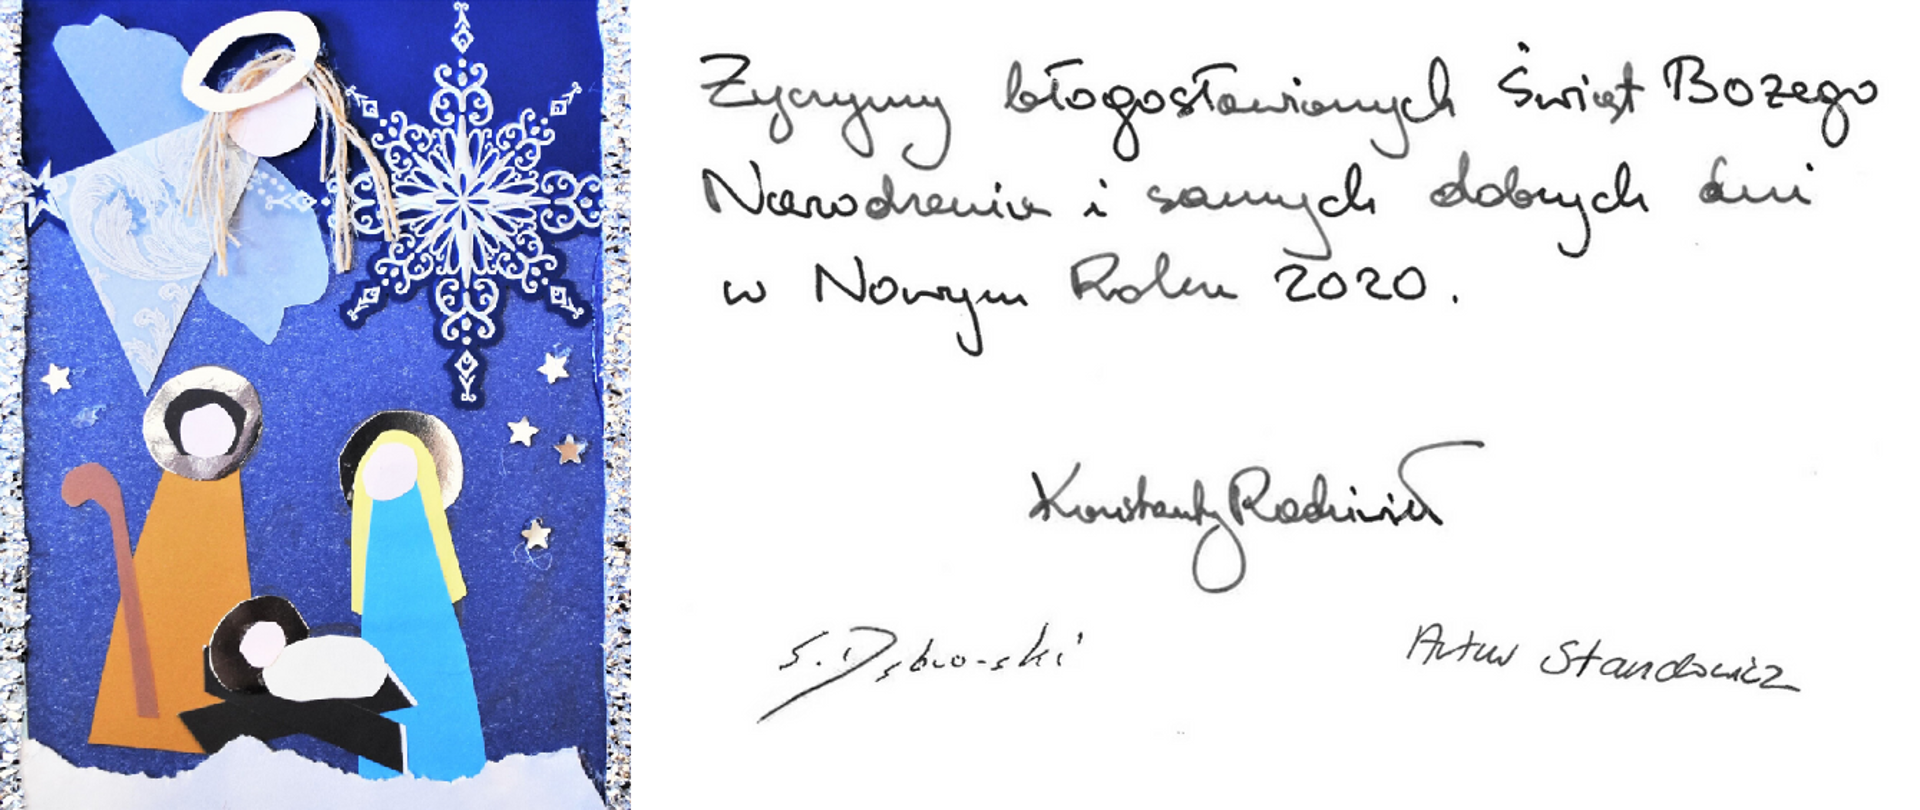 Życzymy błogosławionych Świąt Bożego
Narodzenia i samych dobrych dni
w Nowym Roku 2020.
Konstanty Radziwiłł
S. Dąbrowski
Artur Standowicz